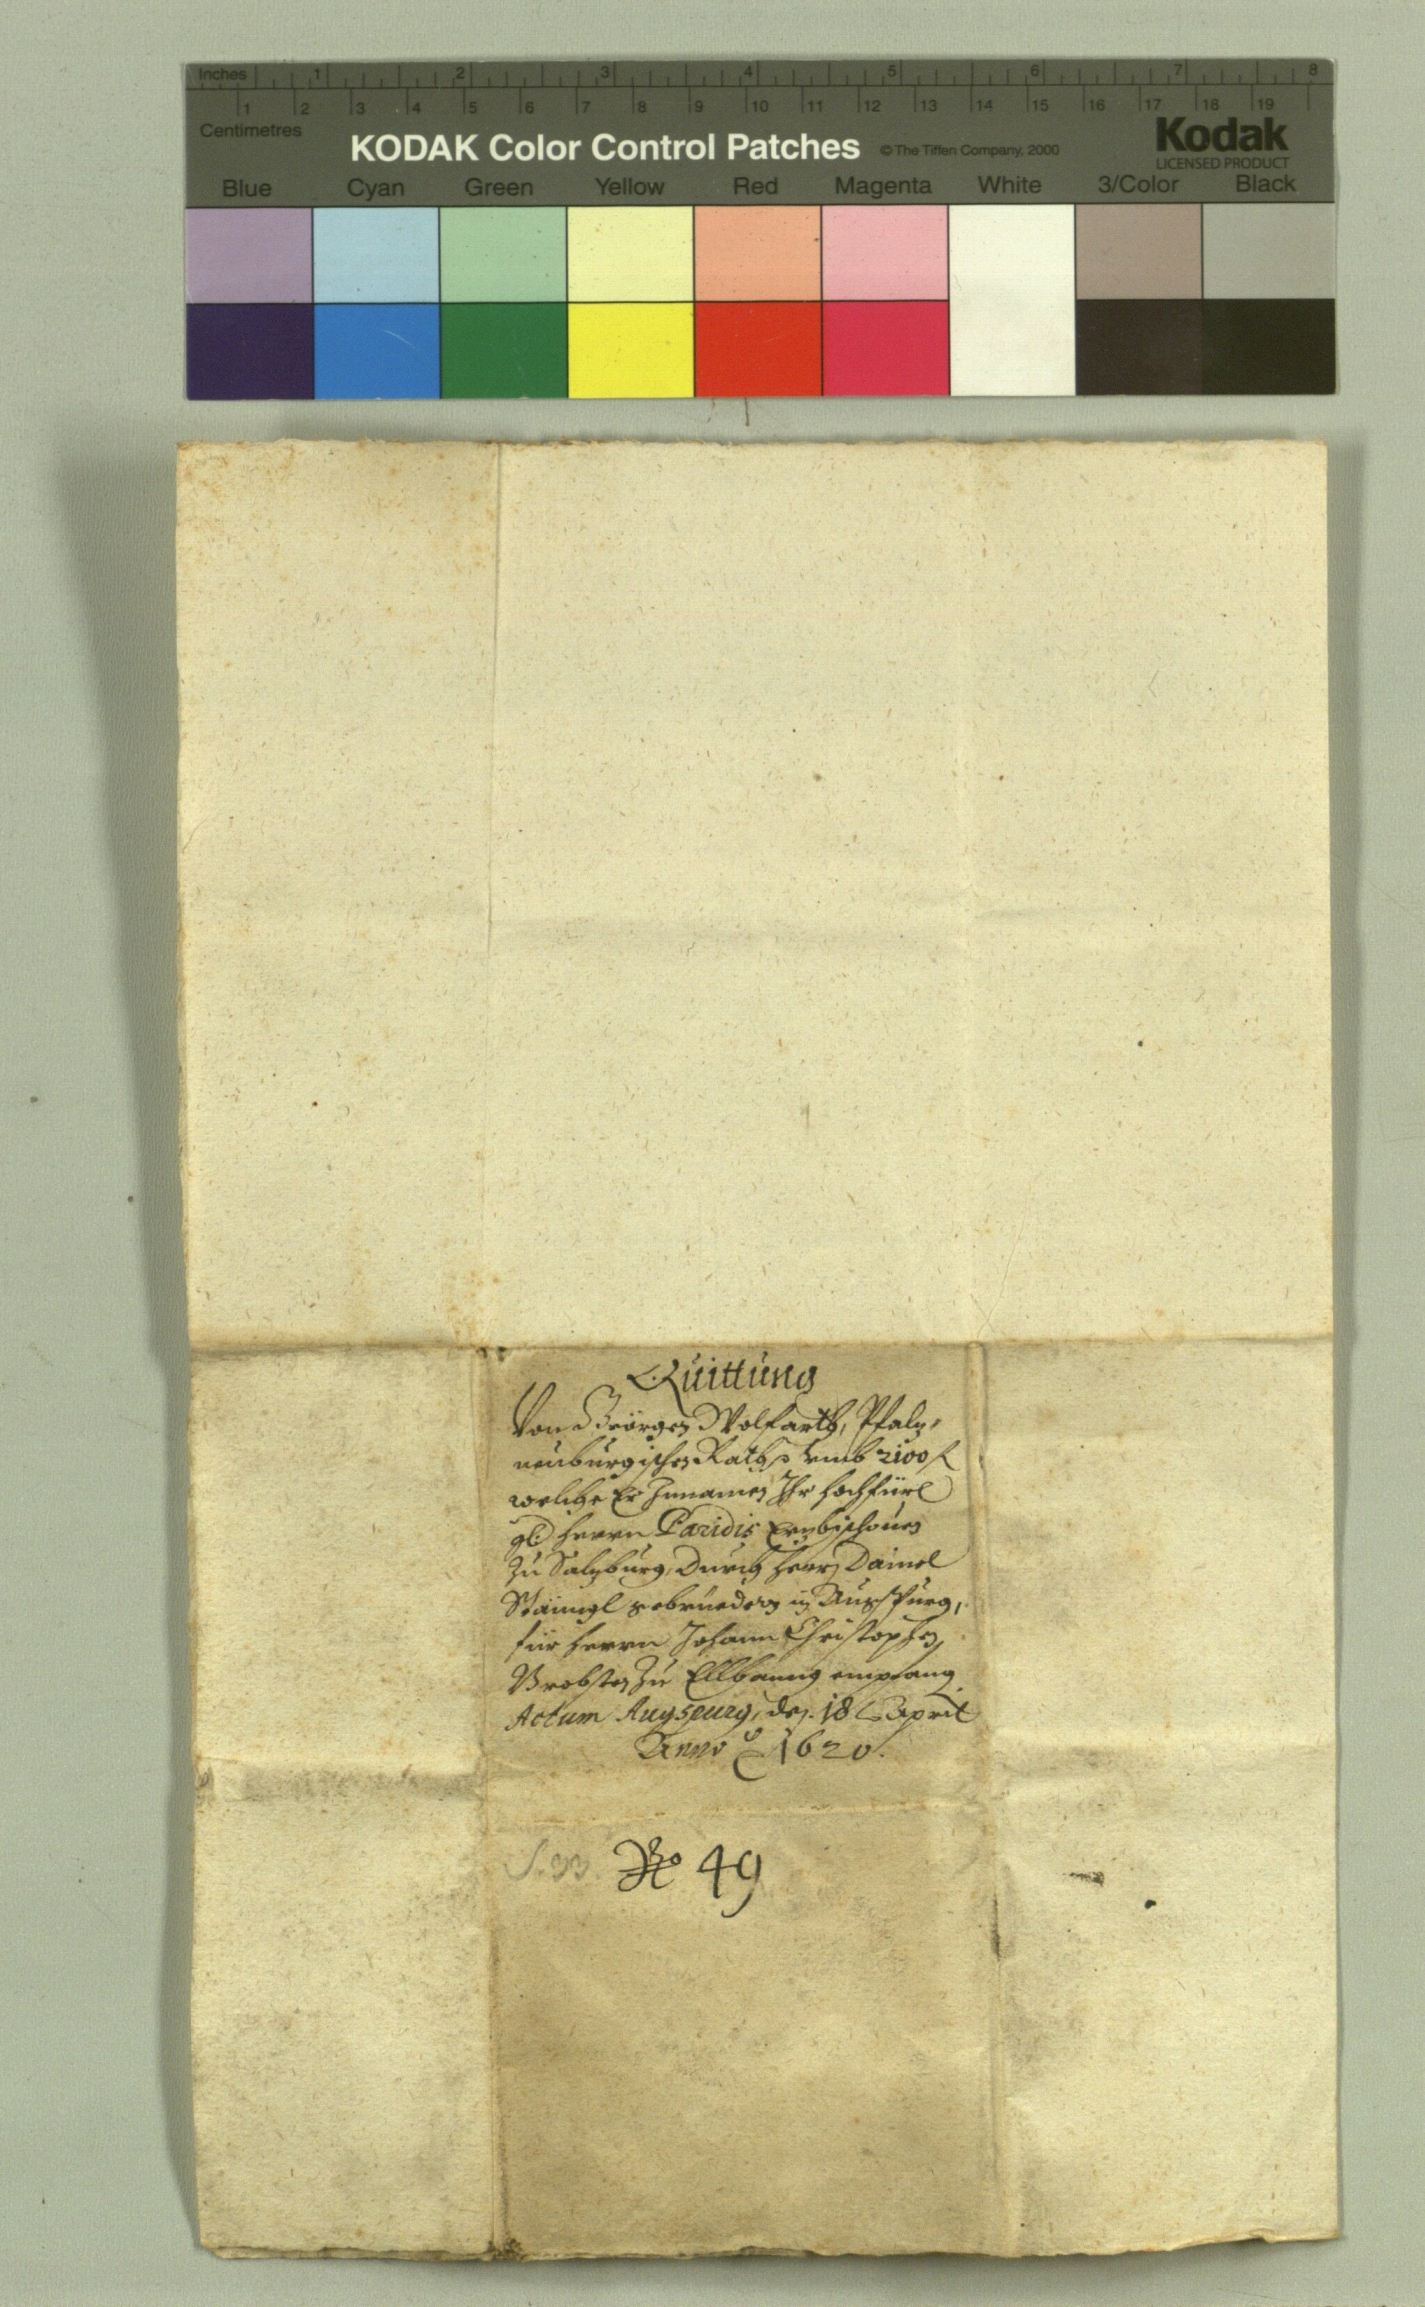 Inches 1 2 3 4 5 6 7 8
1 2 3 4 5 6 7 8 9 10 11 12 13 14 15 16 17 18 19
Centimetres
KODAK Color Control Patches © The Tiffen Company, 2000 Kodak
LICENSED PRODUCT
Blue Cyan Green Yellow Red Magenta White 3/Color Black
Quittung
Von Geörgen Wolfarth, Pfalz,
neuburgischen Raths vmb 2100 f
welche Er Innamen Ihr hochfürl
gl. herrn Paridis Erzbischouen
zu Salzburg, durch herrn Daniel
gebruedern in Augspurg,
für herrn Johann Christophen,
Brobsten zu Ellbanng empfang.
Actum Augspurg, den 18 April
Anno 1620.
No 49